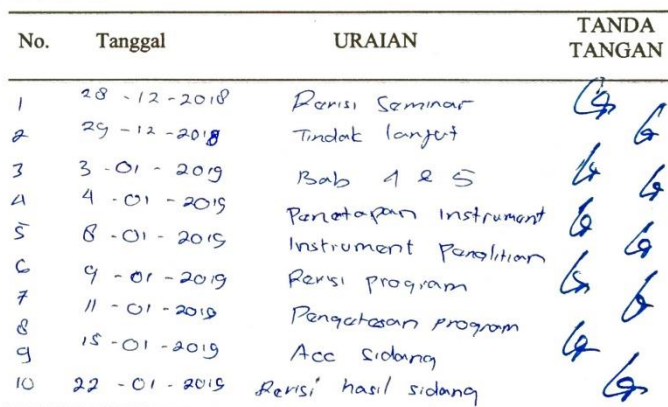 No. Tanggal URAIAN TANDA TANGAN
1 28-12-2018 Revisi Seminar
2 29-12-2018 Tindak lanjut
3 3-01-2019 Bab 4 & 5
4 4-01-2019 Penetapan Instrument
5 8-01-2019 Instrument Penelitian
6 9-01-2019 Revisi program
7 11-01-2019 Pengetesan program
8
9 15-01-2019 Acc sidang
10 22-01-2019 Revisi hasil sidang